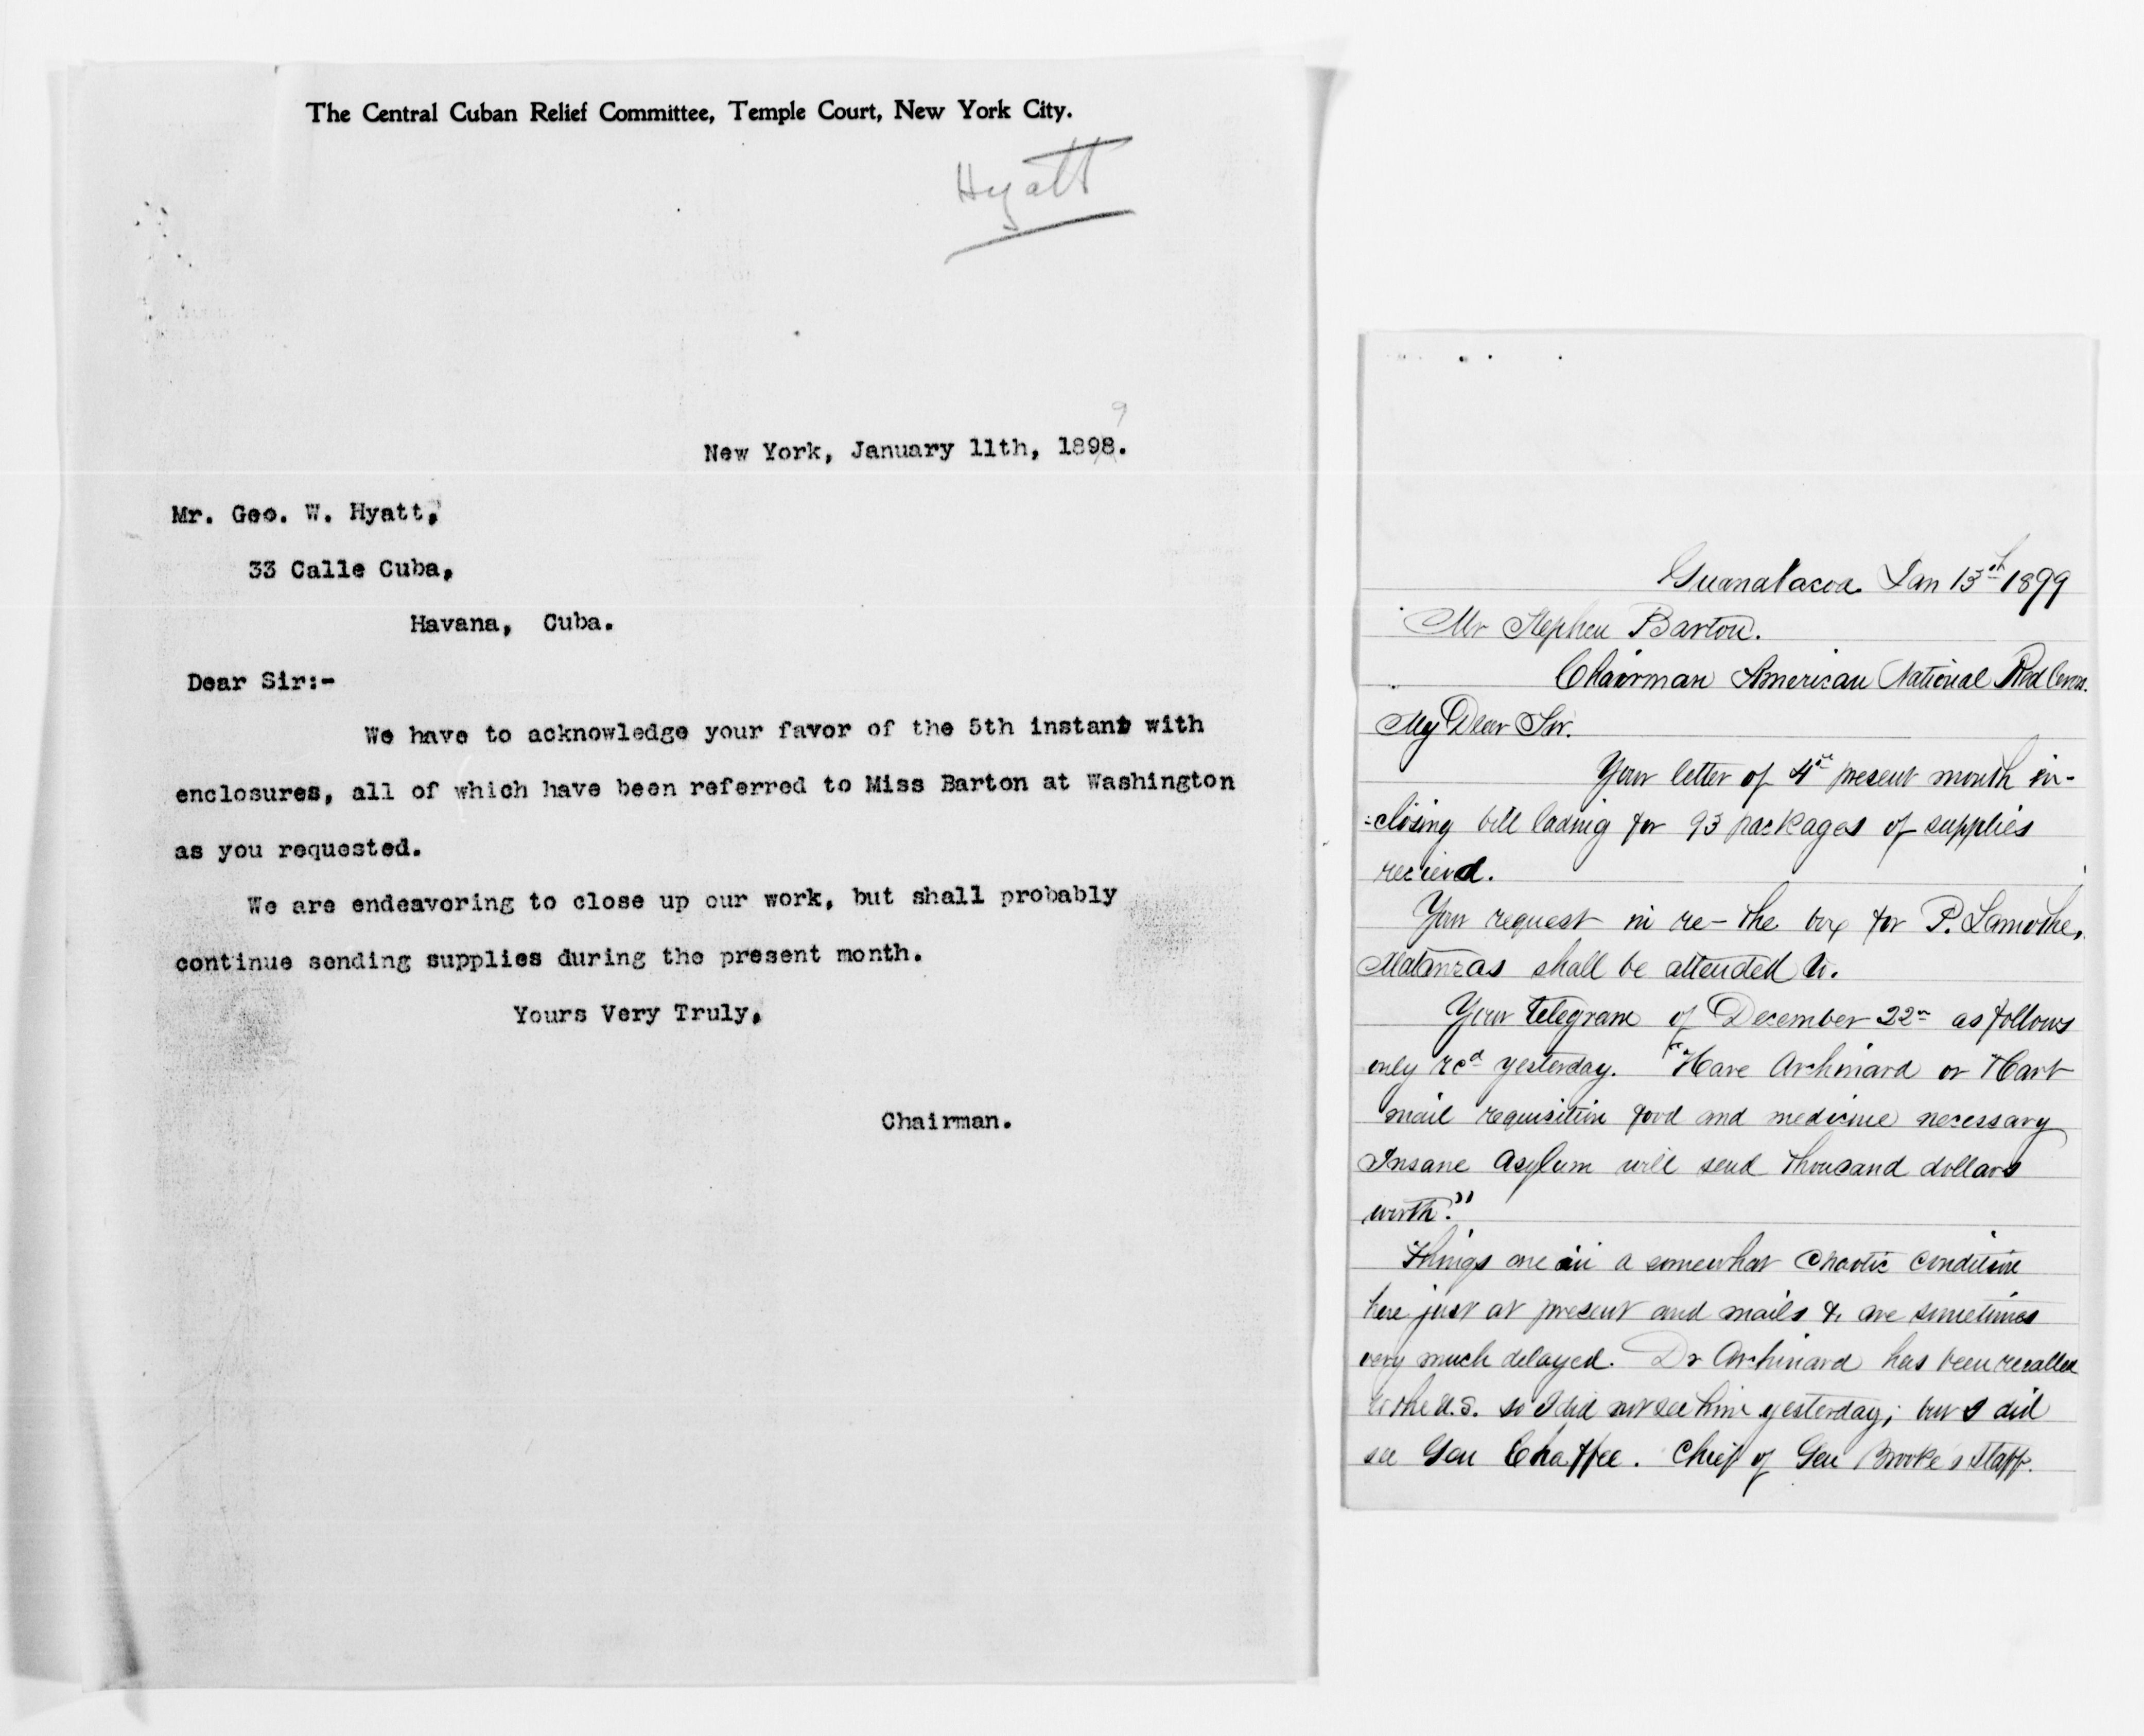 The Central Cuban Relief Committee, Temple Court, New York City.
Hyatt
9
New York, January 11th, 1898.
Mr. Geo. W. Hyatt,
33 Calle Cuba,
Havana, Cuba.
Dear Sir:-
We have to acknowledge your favor of the 5th instant with
enclosures, all of which have been referred to Miss Barton at Washington
as you requested.
We are endeavoring to close up our work, but shall probably
continue sending supplies during the present month.
Yours Very Truly,
Chairman.
Guanabacoa Jan 13th 1899
Mr Stephen Barton.
Chairman American National Red Cross.
My Dear Sir.
Your letter of 4th present month in-
-closing bill lading for 93 packages of supplies
recieved.
Your request in re- the box for P. Lamothe,
Matanzas shall be attended to.
Your telegram of December 22n as follows
only recd yesterday. "Have Archinard or Hart
mail requisition food and medicine necessary
Insane Asylum will send thousand dollars
worth."
Things are in a somewhat chaotic condition
here just at present and mails &c are sometimes
very much delayed. Dr Archinard has been recalled
to the U.S. so I did not see him yesterday; but I did
see Gen Chaffee. Chief of Gen Brooke's staff.